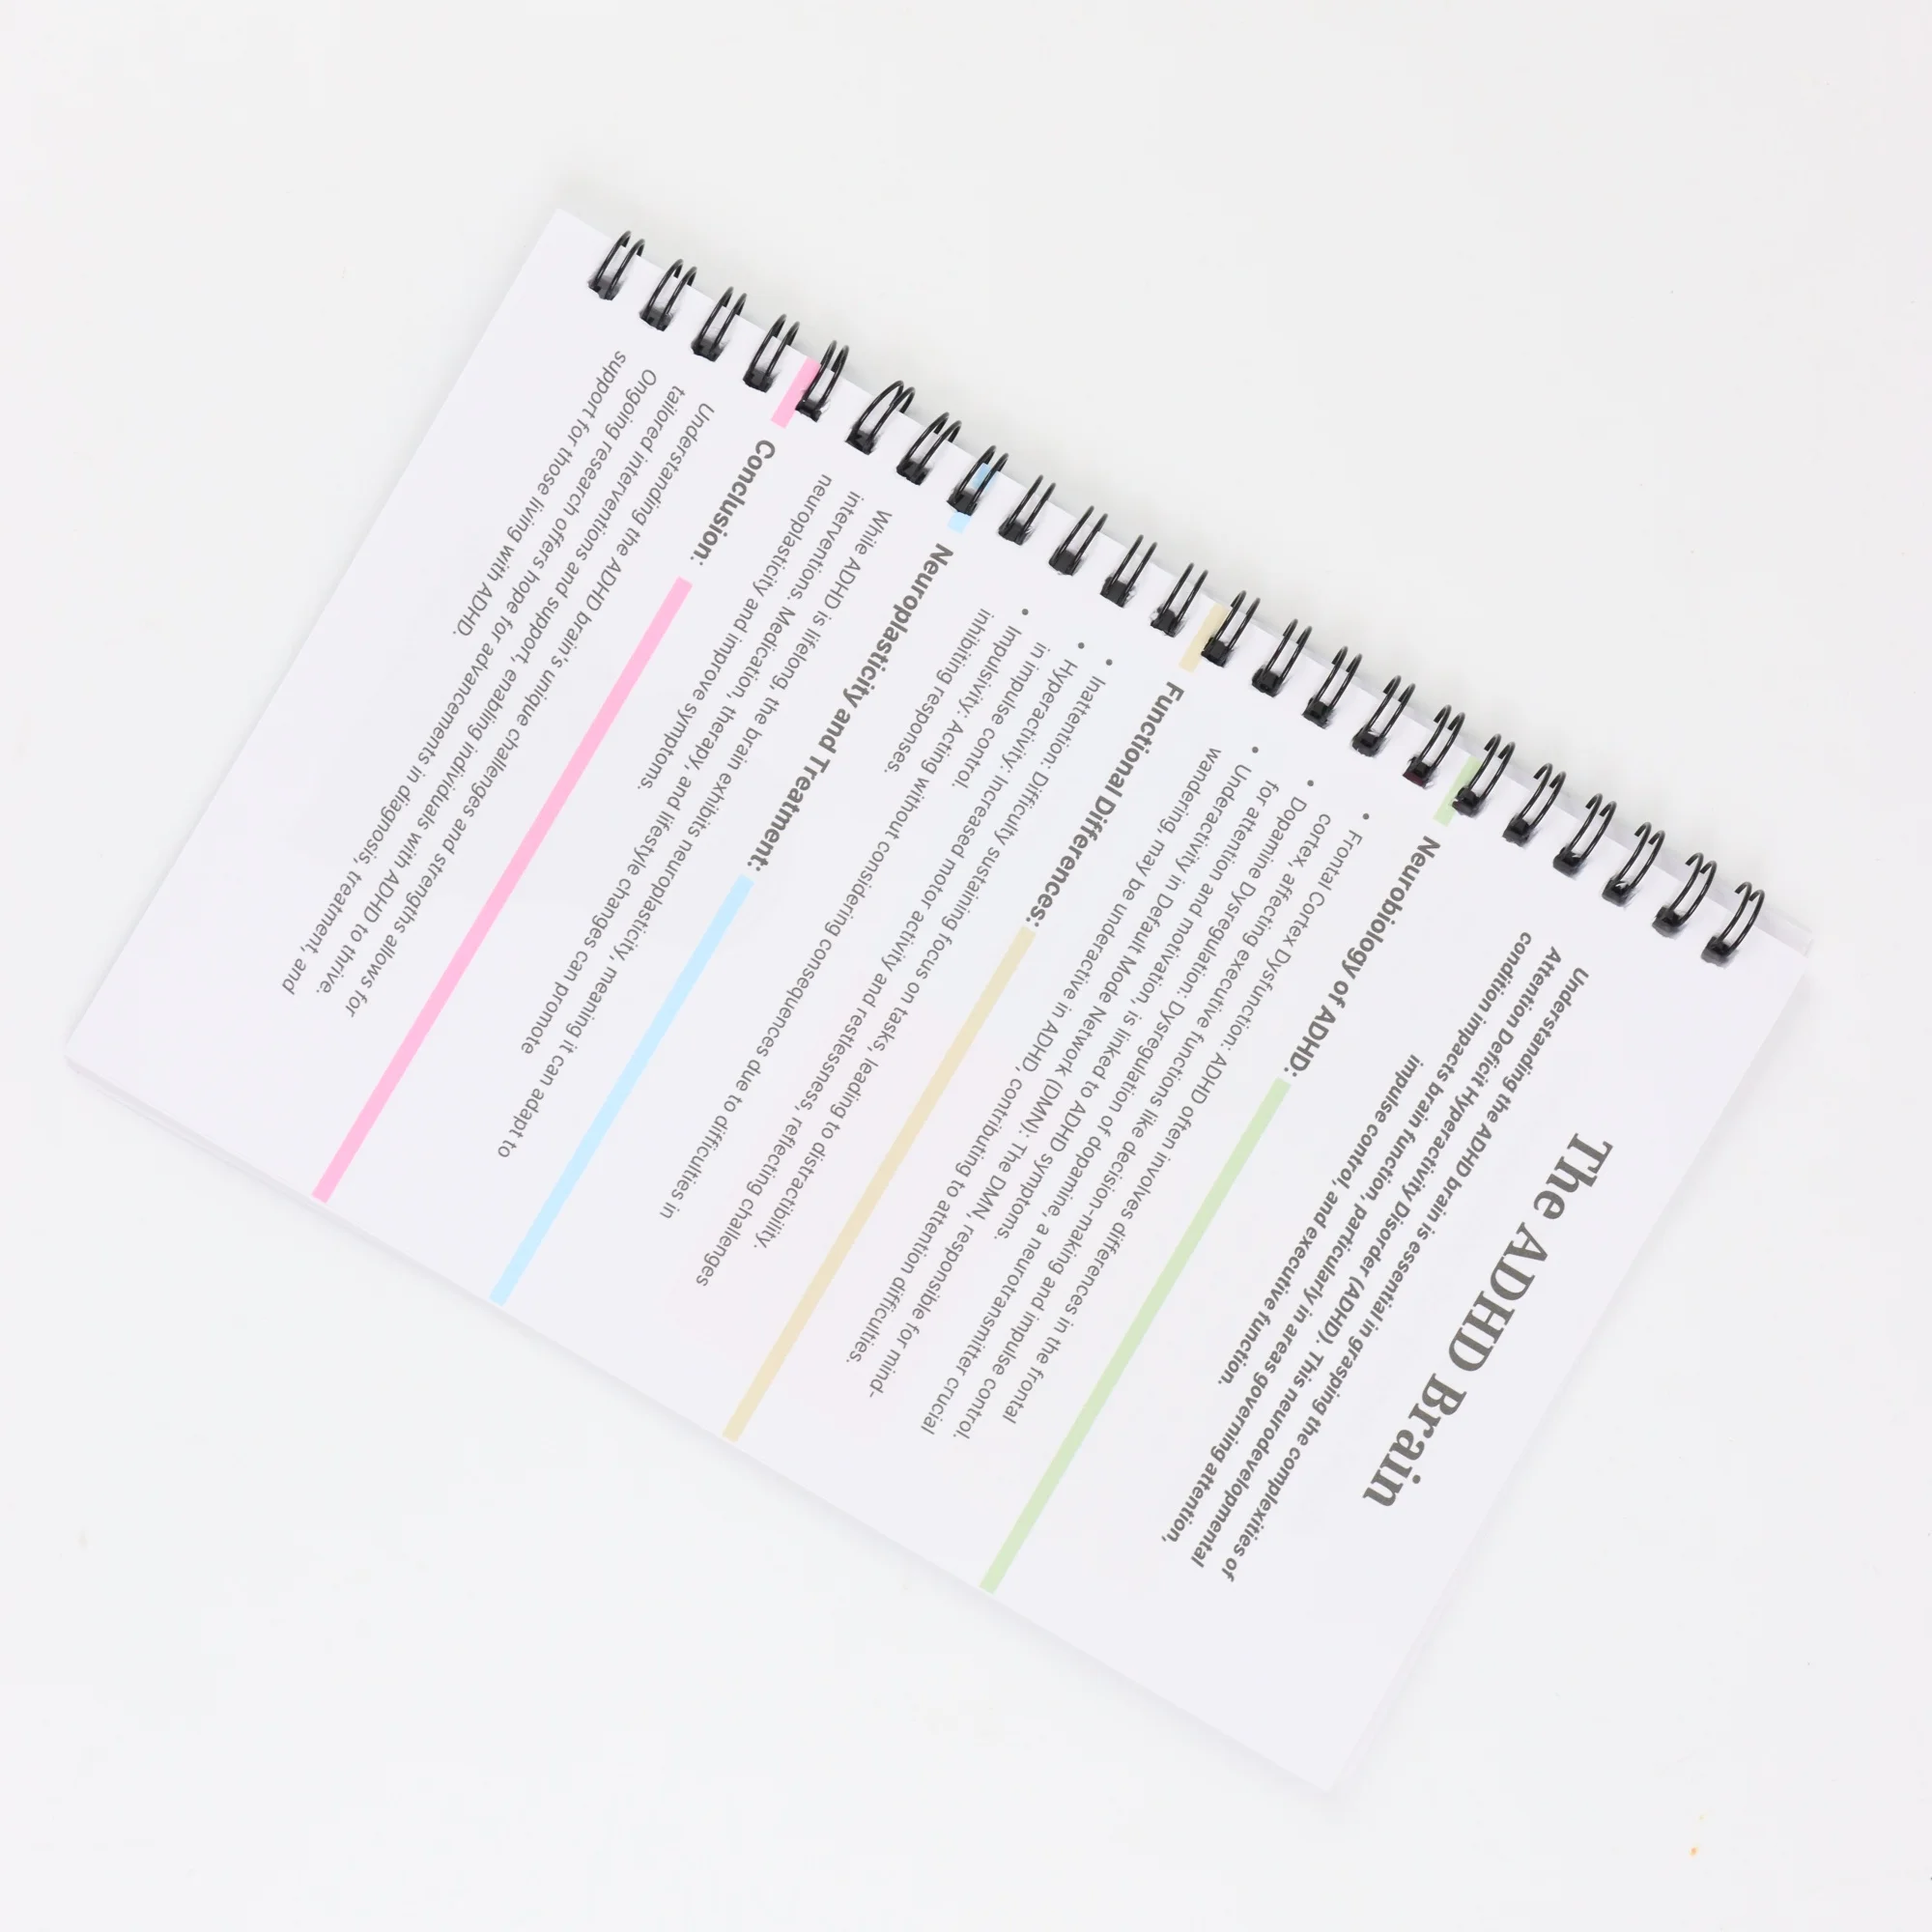 The ADHD Brain
Understanding the ADHD brain is essential in grasping the complexities of
Attention Deficit Hyperactivity Disorder (ADHD). This neurodevelopmental
condition impacts brain function, particularly in areas governing attention,
impulse control, and executive function.
Neurobiology of ADHD:
• Frontal Cortex Dysfunction: ADHD often involves differences in the frontal
cortex, affecting executive functions like decision-making and impulse control.
• Dopamine Dysregulation: Dysregulation of dopamine, a neurotransmitter crucial
for attention and motivation, is linked to ADHD symptoms.
• Underactivity in Default Mode Network (DMN): The DMN, responsible for mind-
wandering, may be underactive in ADHD, contributing to attention difficulties.
Functional Differences:
• Inattention: Difficulty sustaining focus on tasks, leading to distractibility.
• Hyperactivity: Increased motor activity and restlessness, reflecting challenges
in impulse control.
• Impulsivity: Acting without considering consequences due to difficulties in
inhibiting responses.
Neuroplasticity and Treatment:
While ADHD is lifelong, the brain exhibits neuroplasticity, meaning it can adapt to
interventions. Medication, therapy, and lifestyle changes can promote
neuroplasticity and improve symptoms.
Conclusion:
Understanding the ADHD brain's unique challenges and strengths allows for
tailored interventions and support, enabling individuals with ADHD to thrive.
Ongoing research offers hope for advancements in diagnosis, treatment, and
support for those living with ADHD.